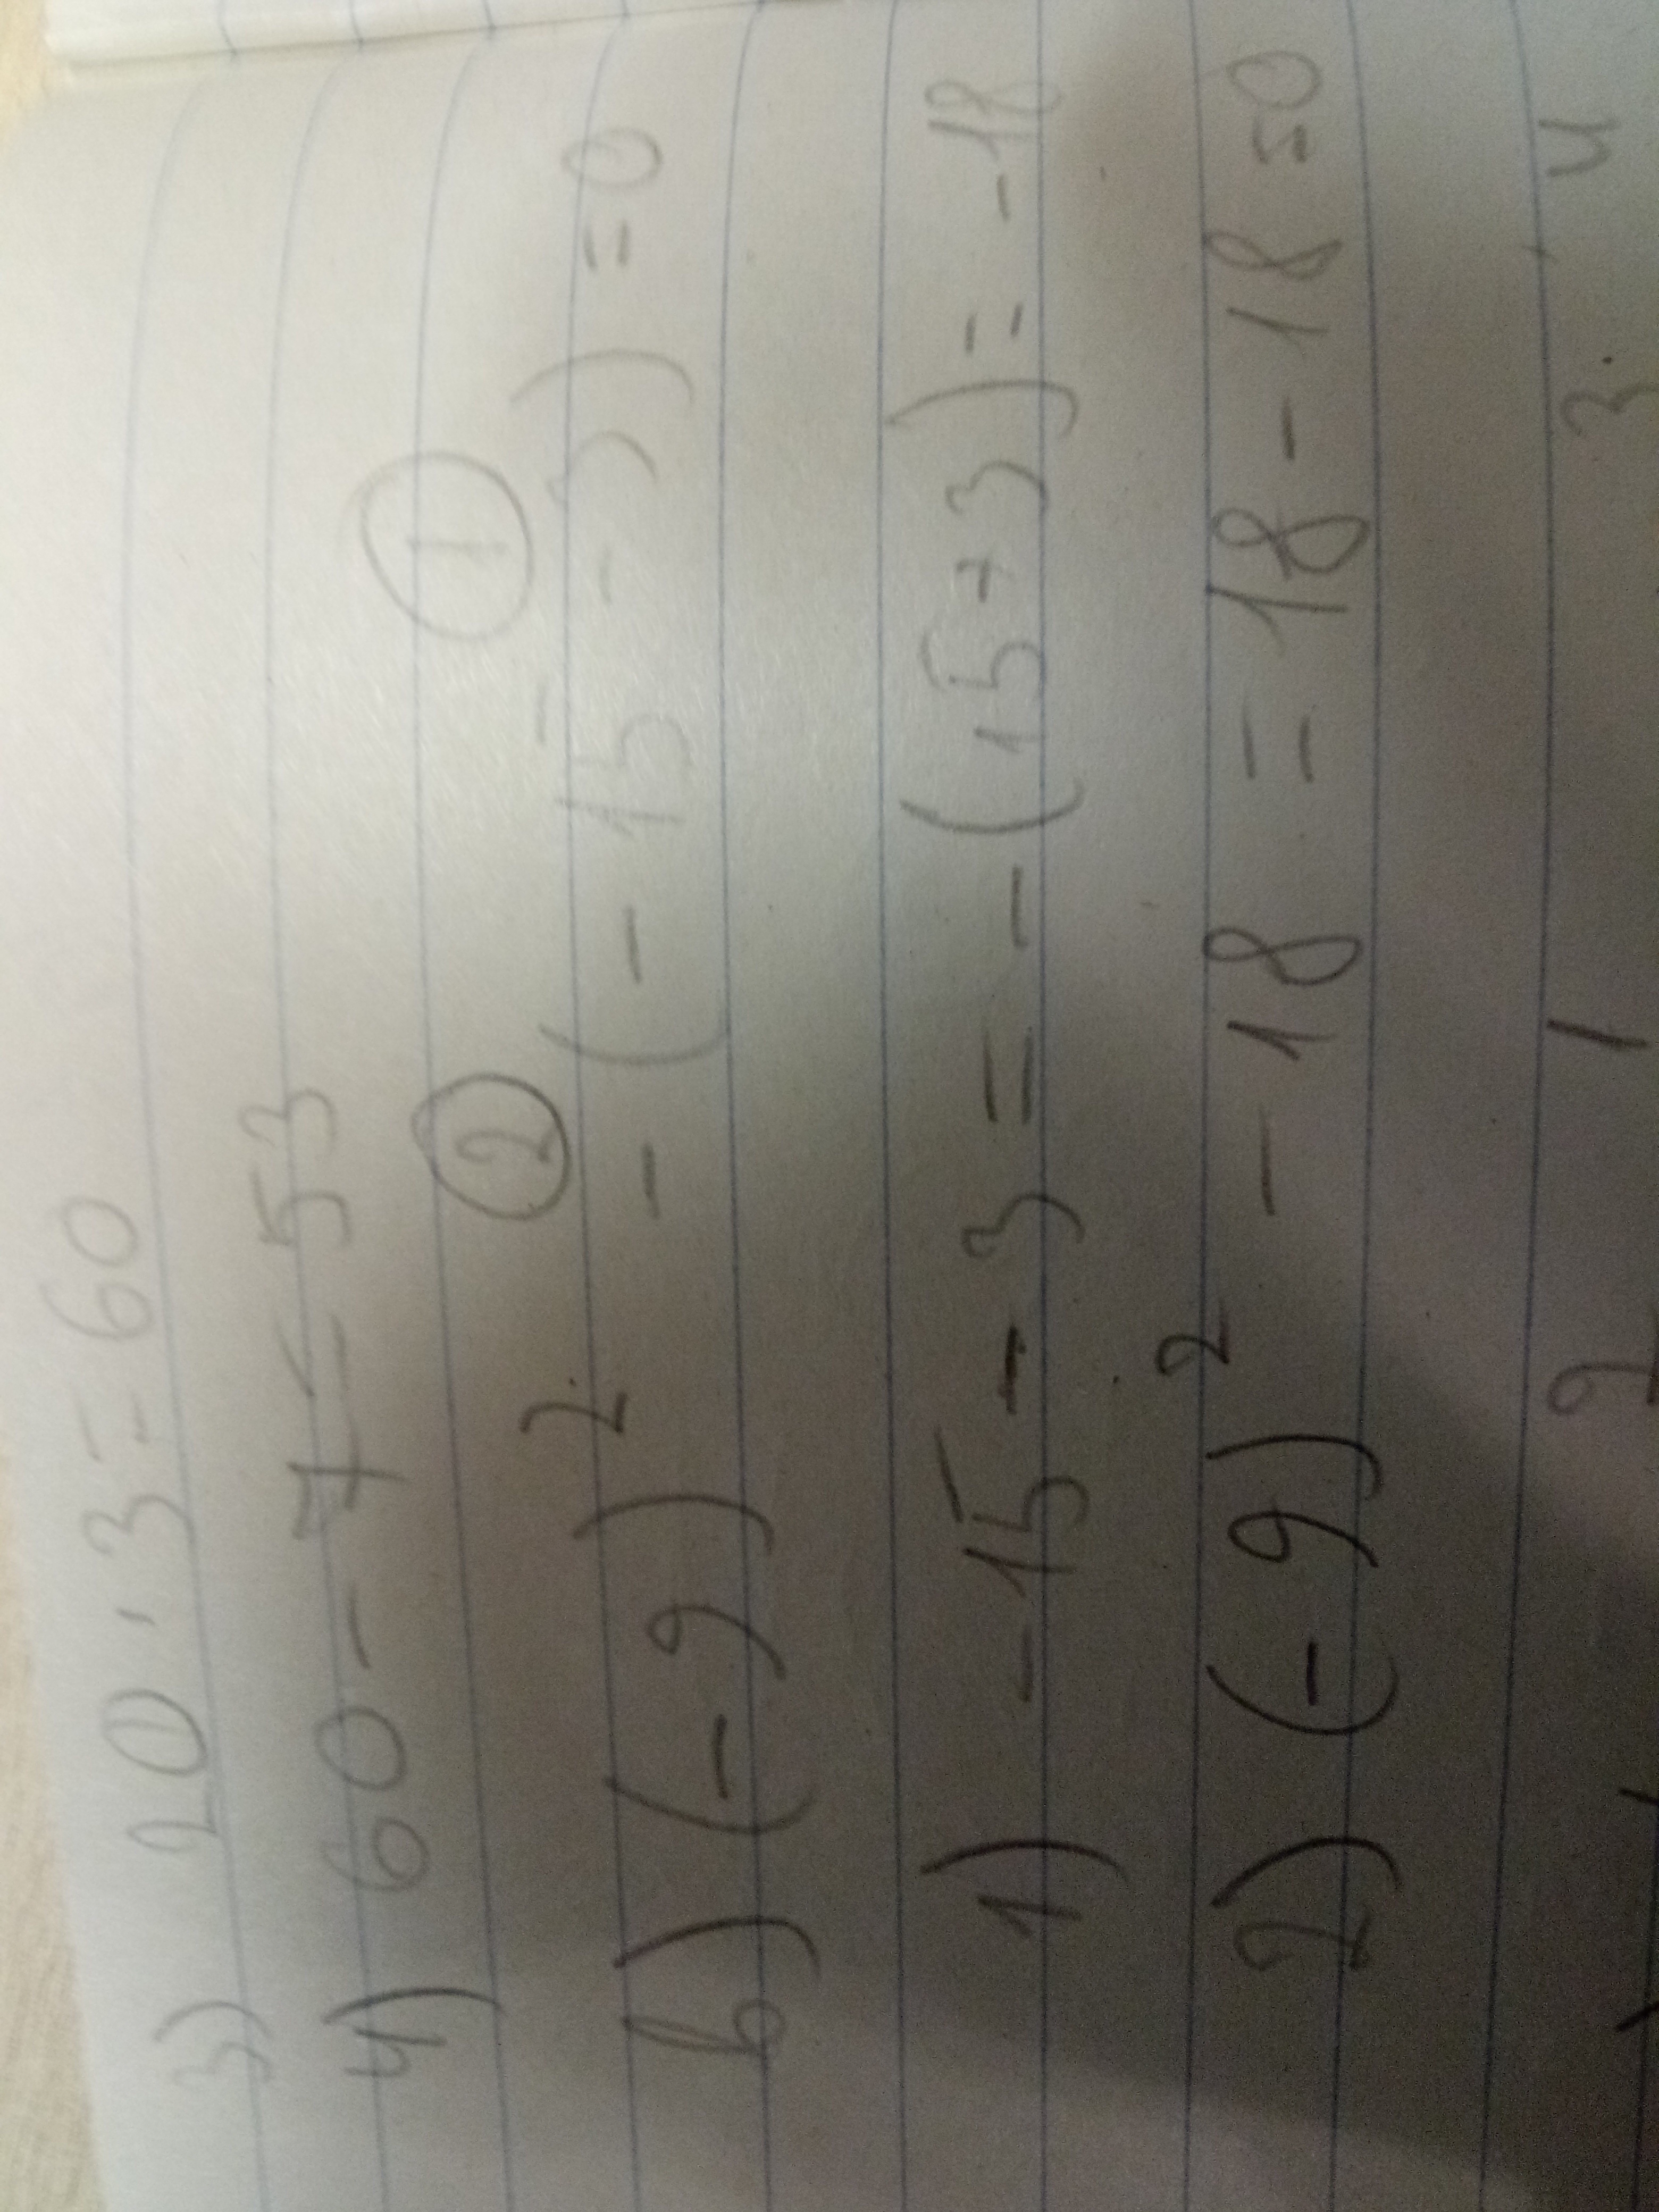 3) 20 · 3 = 60
4) 60 - 7 = 53
② ①
b) (-9)² - (-15 - 3) = 0
1) -15 - 3 = -(15 + 3) = -18
2) (-9)² - 18 = 18 - 18 = 0
2 1 3 4